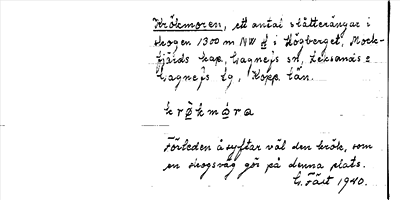 Krökmoren, ett antal slåtterängar i
skogen 1300 m NW i Högberget, Mock-
fjärds kap., Gagnefs sn, Leksands o
Gagnefs tg, Kopp. län.
krökmóra
Förleden åsyftar väl den krök, som
en skogsväg gör på denna plats.
G. Färt 1940.